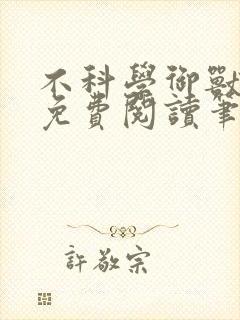 不科學御獸
免費閱讀筆
許敬宗